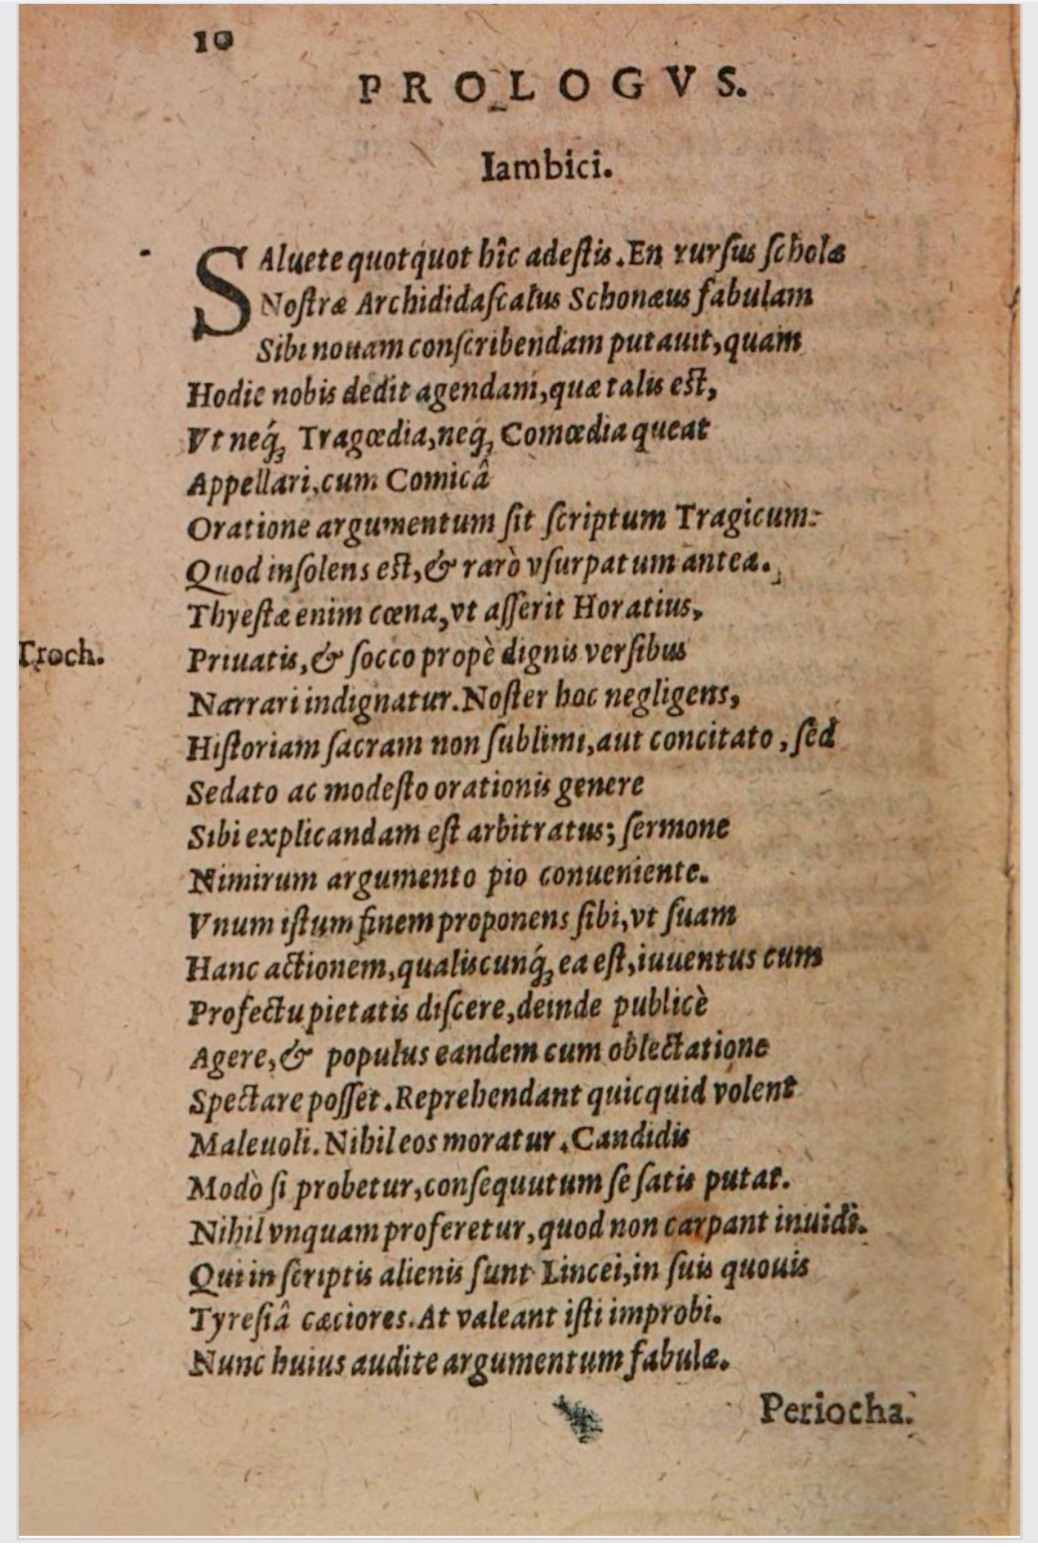 10
PROLOGVS.
Iambici.
SAluete quotquot hîc adeſtis. En rurſus ſcholæ
Noſtræ Archididaſcalus Schonæus fabulam
Sibi nouam conſcribendam putauit, quam
Hodie nobis dedit agendam, quæ talis eſt,
Vt neq́; Tragœdia, neq́; Comœdia queat
Appellari, cum Comicâ
Oratione argumentum ſit ſcriptum Tragicum:
Quod inſolens eſt, & rarò vſurpatum antea.
Thyeſtæ enim cœna, vt aſſerit Horatius,
Troch.
Priuatis, & ſocco propè dignis verſibus
Narrari indignatur. Noſter hoc negligens,
Hiſtoriam ſacram non ſublimi, aut concitato, ſed
Sedato ac modeſto orationis genere
Sibi explicandam eſt arbitratus; ſermone
Nimirum argumento pio conueniente.
Vnum iſtum finem proponens ſibi, vt ſuam
Hanc actionem, qualiscunq́; ea eſt, iuuentus cum
Profectu pietatis diſcere, deinde publicè
Agere, & populus eandem cum oblectatione
Spectare poſſet. Reprehendant quicquid volent
Maleuoli. Nihil eos moratur. Candidis
Modò ſi probetur, conſequutum ſe ſatis putat.
Nihil vnquam proferetur, quod non carpant inuidi.
Qui in ſcriptis alienis ſunt Lincei, in ſuis quouis
Tyreſiâ cæciores. At valeant iſti improbi.
Nunc huius audite argumentum fabulæ.
Periocha.